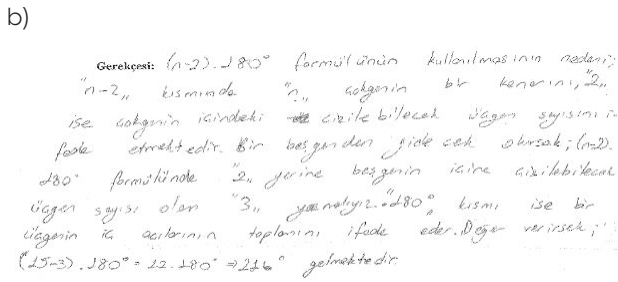 b)
Gerekçesi: (n-2).180° formülünün kullanılmasının nedeni;
"n-2" kısmında "n" çokgenin bir kenarını, "2"
ise çokgenin içindeki çizilebilecek üçgen sayısını i-
fade etmektedir. Bir beşgenden gidecek olursak; (n-2).
180° formülünde "2" yerine beşgenin içine çizilebilecek
üçgen sayısı olan "3" yazmalıyız. "180°" kısmı ise bir
üçgenin iç açılarının toplamını ifade eder. Değer verirsek;
(15-3).180° = 12.180° ⇒ 216° gelmektedir.